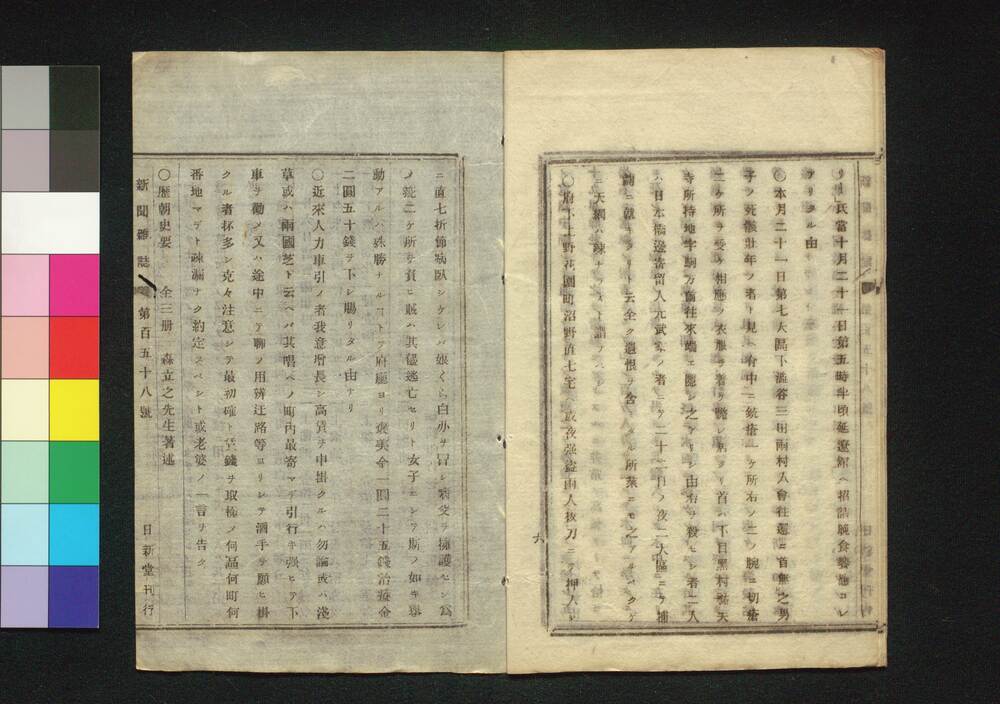 リー氏當十月二十一日第五時半頃延遼館ヘ招請晩食饗應コレ
アリタル由
〇本月二十一日第七大區下澁谷三田兩村入會往還ニ首無之男
子ノ死骸壯年ノ者ト見ヘ有中ニ銃瘡一ケ所右ノ二ノ腕ニ切瘡
二ケ所ヲ受ケ相應ノ衣服ヲ着シ居ヲリ首ハ下目黑村祐天
寺所持地字駒万前往來端ニ隱シ之アリシ由右ヲ殺セシ者二人
ハ日本橋邊寄留人元武家ノ者ニテ二十二日ノ夜一大區ニテ捕
縛ニ就キタリト云全ク遺恨ヲ含ミタル所業ニモコレアルベクゲ
ニ天網ハ疎ナラズト謂フベシ
〇府下上野花園町沼野直七宅ヘ或夜强盜兩人拔刀ニテ押入ト
六
ニ直七折節病臥シケレバ娘くら白刃ヲ冒シ家父ヲ擁護セン爲
ノ疵二ケ所ヲ負ヒ賊ハ其儘逃亡セリト女子ニシテ斯ノ如キ擧
動アルハ殊勝ナルコトテ府廳ヨリ褒美金一圓二十五錢治療金
二圓五十錢ヲ下シ賜リタル由ナリ
〇近來人力車引ノ者我意增長シ高賃ヲ申掛クルハ勿論或ハ淺
草或ハ兩國芝ト云ヘバ其唱ヘノ町内最寄マデ引行キ强ヒテ下
車ヲ勸メ又ハ途中ニテ聊ノ用辨迂路等ヨリシテ酒手ヲ願ヒ掛
クル者抔多シ克々注意シテ最初確ト賃錢ヲ取極メ何區何町何
番地マデト疎漏ナク約定スベシト或老婆ノ一言ヲ告ク
〇歷朝史要 全三册 森立之先生著述
新聞雜誌 第百五十八號 日新堂刊行